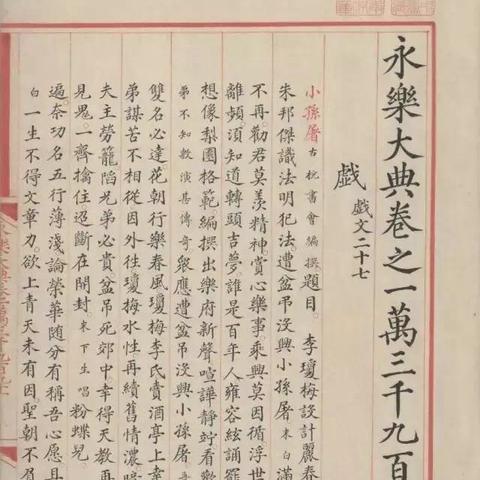 永樂大典卷之一萬三千九百
戲 戲文二十七
小孫屠 古杭書會編撰 題目。 李瓊梅設計麗春
朱邦傑識法明犯法。遭盆吊沒興小孫屠 末白 滿
不再。勸君莫羨精神。賞心樂事。乘興莫因循。浮世
離頻。須知道轉頭吉夢。誰是百年人。雍容絃誦罷
想像梨園格範。編撰出樂府新聲。喧譁靜竚看歡
弟不知敷演甚傳奇 衆應 遭盆吊沒興小孫屠
雙名必達。花朝行樂春風。瓊梅李氏賣酒亭上幸
弟謀苦不相從。因外往瓊梅水性。再續舊情濃。暗
夫主勞籠。陷兄弟必貴。盆吊死郊中。幸得天教再
見鬼。一齊擒住。迢斷在開封 末下 生唱 粉蝶兒
遍。奈功名五行薄淺。論榮華隨分有。稱吾心愿且
白 一生不得文章力。欲上青天未有因。聖朝不負